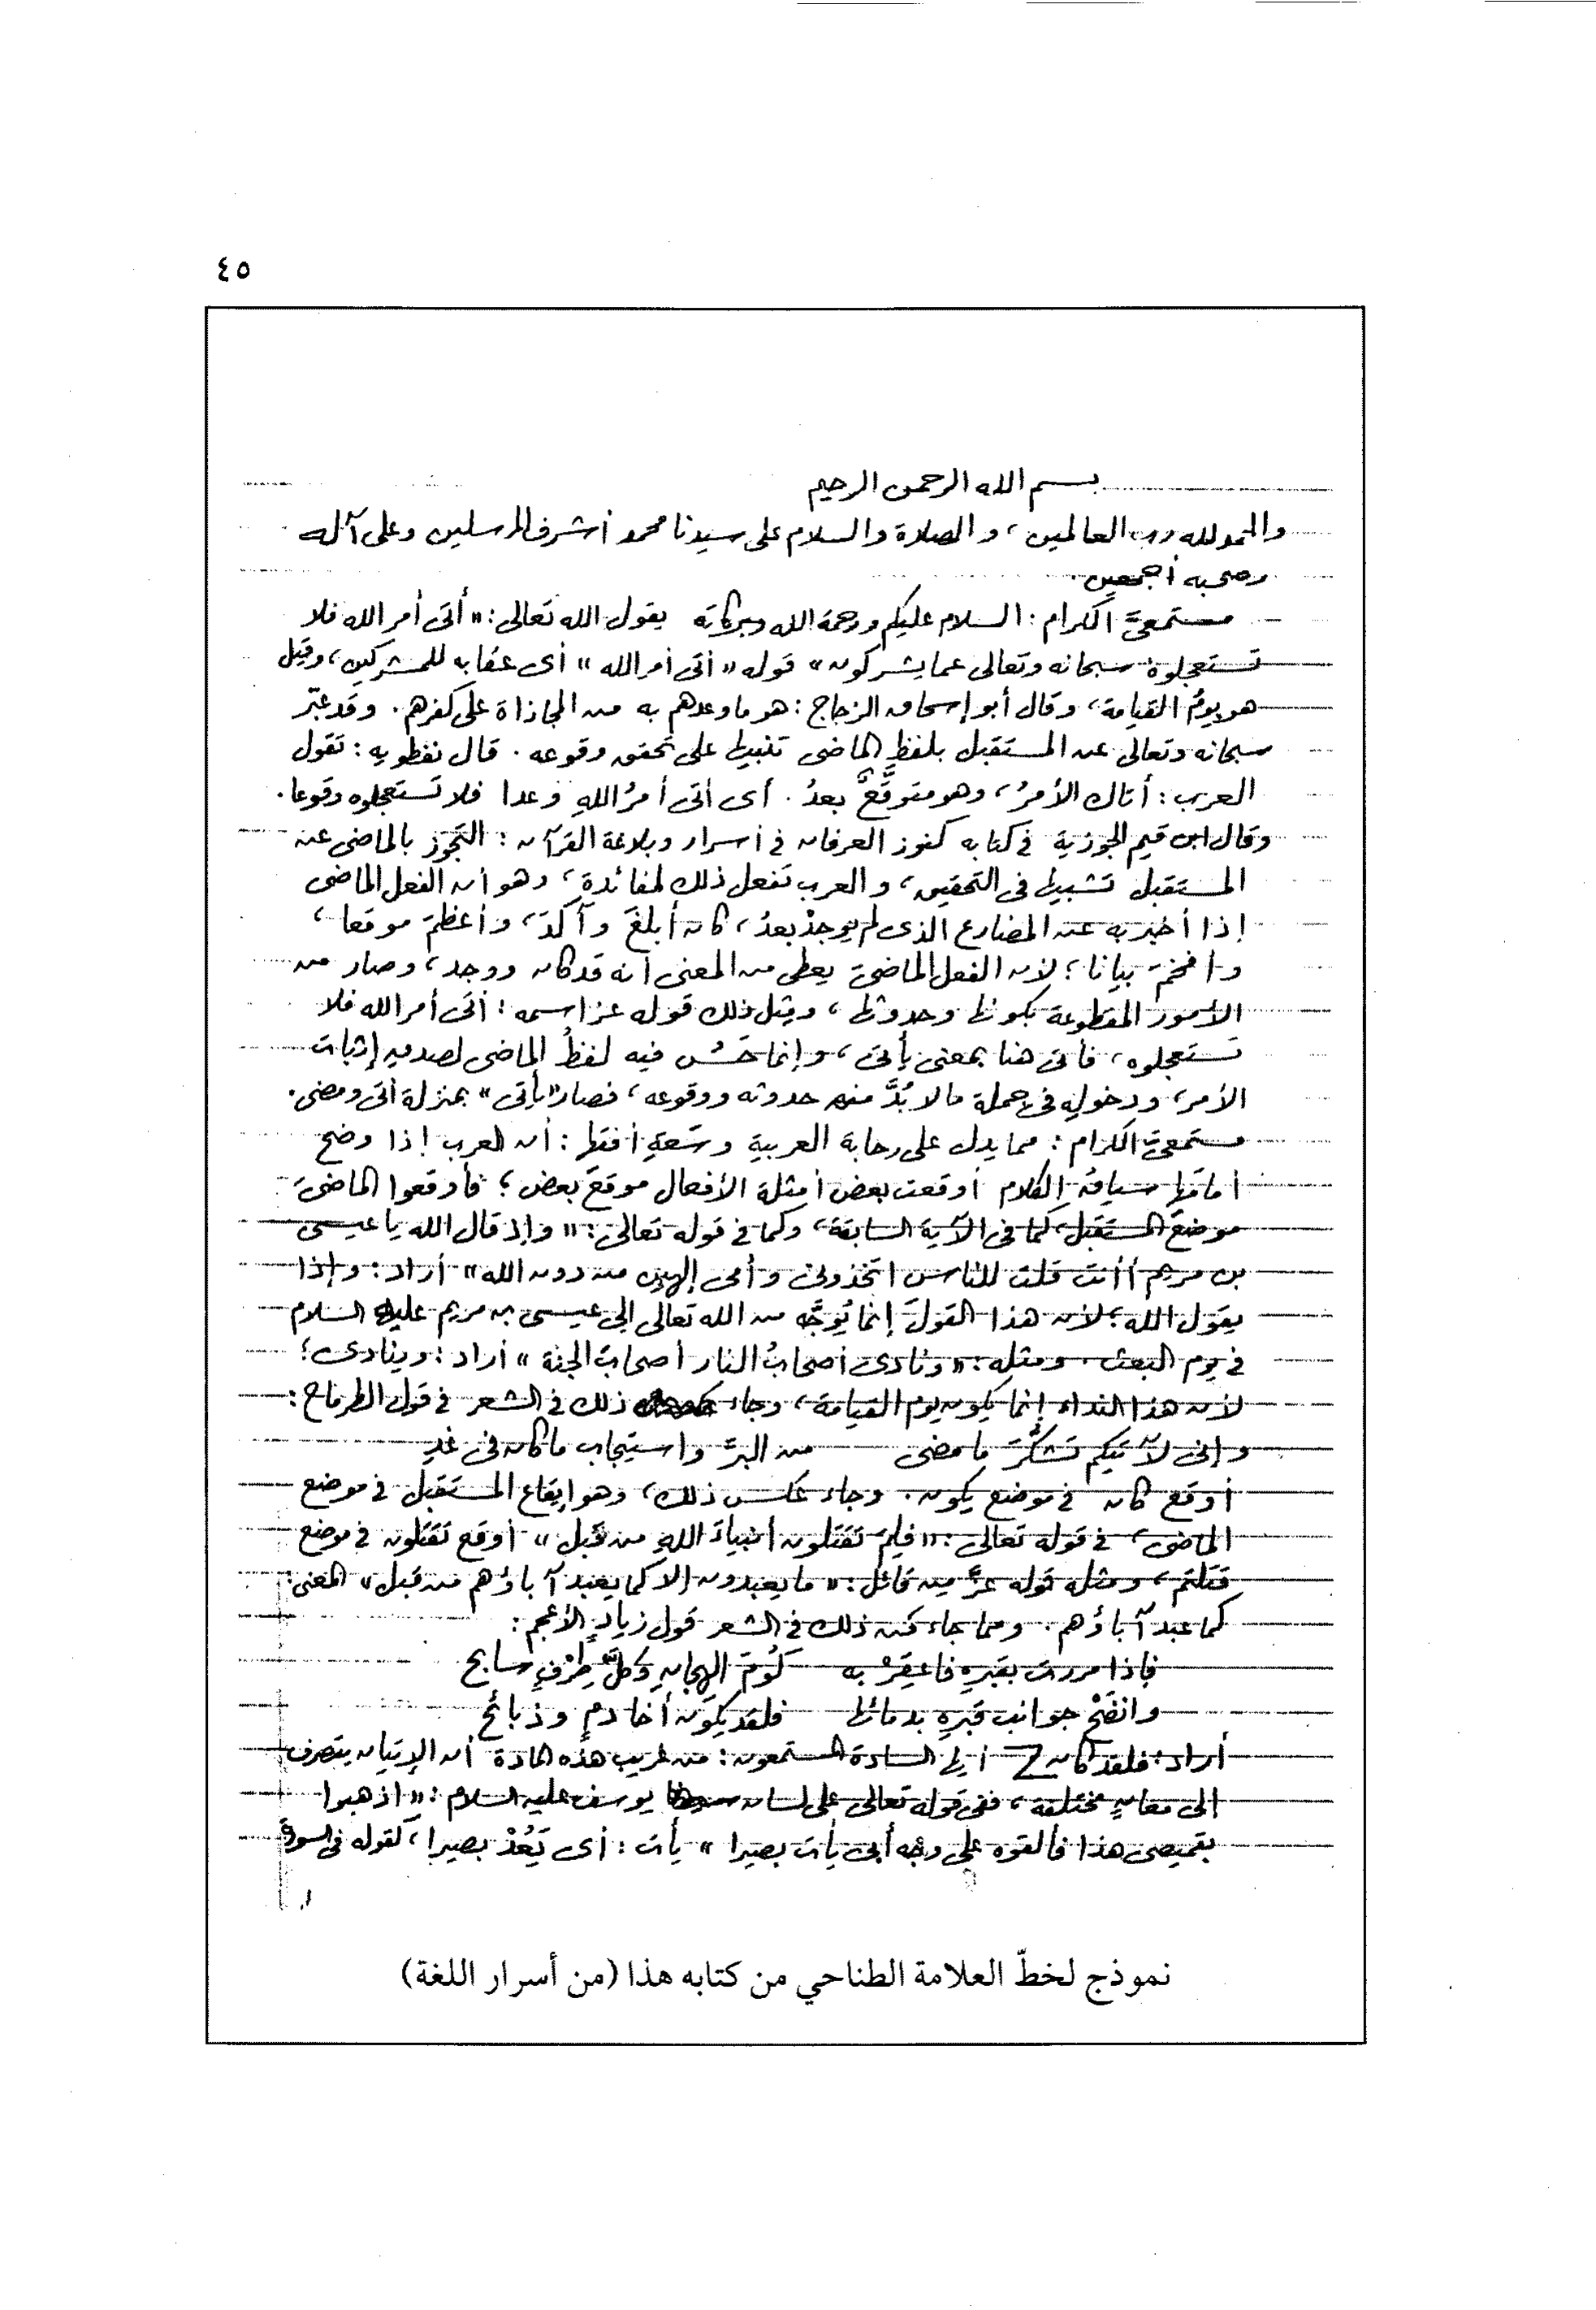 ٤٥
بسم الله الرحمن الرحيم
والحمد لله رب العالمين، والصلاة والسلام على سيدنا محمد أشرف المرسلين وعلى آله
وصحبه أجمعين.
مستمعىَّ الكرام: السلام عليكم ورحمة الله وبركاته يقول الله تعالى: «أتى أمر الله فلا
تستعجلوه سبحانه وتعالى عما يشركون» قوله «أتى أمر الله» أى عقابه للمشركين، وقيل
هو يومُ القيامة، وقال أبو إسحاق الزجاج: هو ما وعدهم به من المجازاة على كفرهم. وقد عبّر
سبحانه وتعالى عن المستقبل بلفظِ الماضى تنبيها على تحقق وقوعه. قال نفطويه: تقول
العرب: أتاك الأمرُ، وهو متوقَّعٌ بعدُ. أى أتى أمرُ اللهِ وعدا فلا تستعجلوه وقوعا.
وقال ابن قيم الجوزية فى كتابه كنوز العرفان فى أسرار وبلاغة القرآن: التجوز بالماضى عن
المستقبل تشبيها فى التحقيق، والعرب تفعل ذلك لفائدةٍ، وهو أن الفعل الماضى
إذا أخبر به عن المضارع الذى لم يوجدْ بعدُ، كان أبلغَ وآكدَ، وأعظمَ موقعا،
وأفخمَ بيانا؛ لأن الفعل الماضىَ يعطى من المعنى أنه قد كان ووجد، وصار من
الأمور المقطوعة بكونها وحدوثها، ومثل ذلك قوله عز اسمه: أتى أمر الله فلا
تستعجلوه، فأتى هنا بمعنى يأتى، وإنما حَسُن فيه لفظُ الماضى لصدقِ إثبات
الأمر، ودخولِه فى جملة ما لا بُدَّ من حدوثه ووقوعه، فصار «يأتى» بمنزلة أتى ومضى.
مستمعىَّ الكرام: مما يدل على رحابة العربيةِ وسَعةِ أفقها: أن العرب إذا وضح
أمامَها سياقُ الكلام أوقعت بعض أمثلة الأفعال موقعَ بعض؛ فأوقعوا الماضىَ
موضعَ المستقبل، كما فى الآية السابقة، وكما فى قوله تعالى: «وإذ قال الله يا عيسى
بن مريم أأنت قلت للناس اتخذونى وأمى إلهين من دون الله» أراد: وإذا
يقول الله؛ لأن هذا القولَ إنما يُوجَّه من الله تعالى إلى عيسى بن مريم عليه السلام
فى يوم البعث. ومثله: «ونادى أصحابُ النار أصحابَ الجنة» أراد: وينادى؛
لأن هذا النداء إنما يكون يوم القيامة، وجاء ذلك فى الشعر فى قول الطرماح:
وإنى لآتيكم تَشَكُّرَ ما مضى من البرِّ واستيجاب ما كان فى غدِ
أوقع كان فى موضع يكون. وجاء عكس ذلك، وهو إيقاع المستقبل فى موضع
الماضى، فى قوله تعالى: «فلِمَ تقتلون أنبياءَ اللهِ من قبل» أوقع تقتلون فى موضع
قتلتم، ومثله قوله عزَّ من قائل: «ما يعبدون إلا كما يعبد آباؤهم من قبل» المعنى:
كما عبد آباؤهم. ومما جاء من ذلك فى الشعر قول زيادٍ الأعجم:
فإذا مررت بقبره فاعقِرْ به كُومَ الهجانِ وكلَّ طِرْفٍ سابح
وانضَحْ جوانب قبرِه بدمائها فلقد يكون أخا دمٍ وذبائح
أراد: فلقد كان أيها السادة المستمعون: من غريب هذه المادة أن الإتيان يتصرف
إلى معانٍ مختلفة، ففى قوله تعالى على لسان يوسف عليه السلام: «اذهبوا
بقميصى هذا فألقوه على وجه أبى يأت بصيرا» يأت: أى يَعُدْ بصيرا، كقوله فى السورة
نموذج لخطّ العلامة الطناحي من كتابه هذا (من أسرار اللغة)